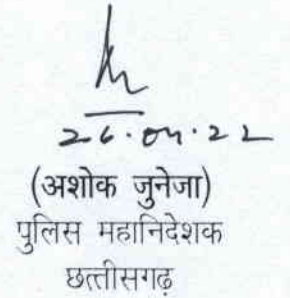 26.04.22
(अशोक जुनेजा)
पुलिस महानिदेशक
छत्तीसगढ़